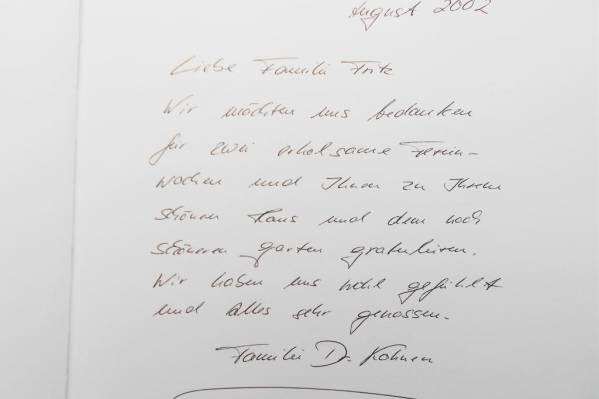 August 2002
Liebe Familie Fritz
Wir möchten uns bedanken
für zwei erholsame Ferien-
wochen und Ihnen zu Ihrem
schönen Haus und dem noch
schöneren Garten gratulieren.
Wir haben uns wohl gefühlt
und alles sehr genossen.
Familie Dr. Kohnen